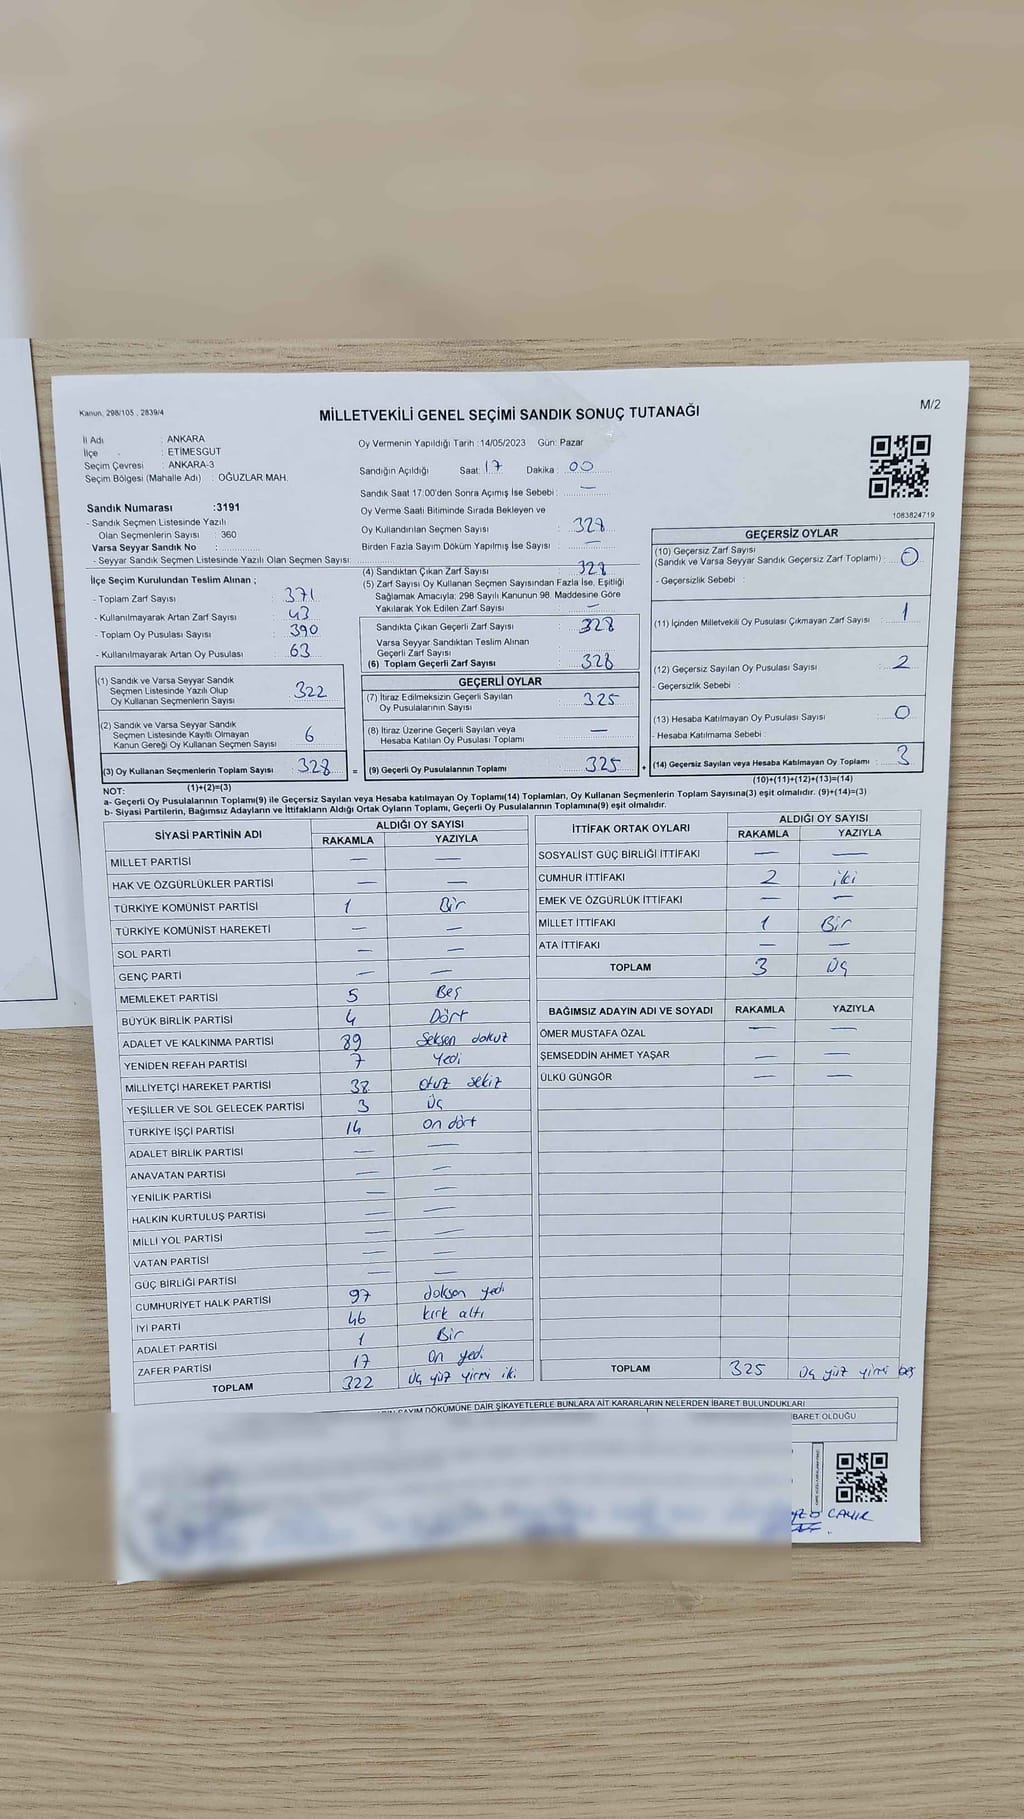 Kanun, 298/105 , 2839/4
MİLLETVEKİLİ GENEL SEÇİMİ SANDIK SONUÇ TUTANAĞI
M/2
İl Adı : ANKARA
İlçe : ETİMESGUT
Seçim Çevresi : ANKARA-3
Seçim Bölgesi (Mahalle Adı) : OĞUZLAR MAH.
Sandık Numarası :3191
- Sandık Seçmen Listesinde Yazılı
Olan Seçmenlerin Sayısı : 360
Varsa Seyyar Sandık No :
- Seyyar Sandık Seçmen Listesinde Yazılı Olan Seçmen Sayısı
Oy Vermenin Yapıldığı Tarih :14/05/2023 Gün: Pazar
Sandığın Açıldığı Saat: 17 Dakika : 00
Sandık Saat 17:00'den Sonra Açımış İse Sebebi : —
Oy Verme Saati Bitiminde Sırada Bekleyen ve
Oy Kullandırılan Seçmen Sayısı : 328
Birden Fazla Sayım Döküm Yapılmış İse Sayısı : —
1083824719
İlçe Seçim Kurulundan Teslim Alınan ;
- Toplam Zarf Sayısı : 371
- Kullanılmayarak Artan Zarf Sayısı : 43
- Toplam Oy Pusulası Sayısı : 390
- Kullanılmayarak Artan Oy Pusulası : 63
(1) Sandık ve Varsa Seyyar Sandık
Seçmen Listesinde Yazılı Olup
Oy Kullanan Seçmenlerin Sayısı : 322
(2) Sandık ve Varsa Seyyar Sandık
Seçmen Listesinde Kayıtlı Olmayan
Kanun Gereği Oy Kullanan Seçmen Sayısı : 6
(3) Oy Kullanan Seçmenlerin Toplam Sayısı : 328
(4) Sandıktan Çıkan Zarf Sayısı : 328
(5) Zarf Sayısı Oy Kullanan Seçmen Sayısından Fazla İse, Eşitliği
Sağlamak Amacıyla; 298 Sayılı Kanunun 98. Maddesine Göre
Yakılarak Yok Edilen Zarf Sayısı : —
Sandıkta Çıkan Geçerli Zarf Sayısı : 328
Varsa Seyyar Sandıktan Teslim Alınan
Geçerli Zarf Sayısı :
(6) Toplam Geçerli Zarf Sayısı : 328
GEÇERLİ OYLAR
(7) İtiraz Edilmeksizin Geçerli Sayılan
Oy Pusulalarının Sayısı : 325
(8) İtiraz Üzerine Geçerli Sayılan veya
Hesaba Katılan Oy Pusulası Toplamı : —
= (9) Geçerli Oy Pusulalarının Toplamı : 325
GEÇERSİZ OYLAR
(10) Geçersiz Zarf Sayısı
(Sandık ve Varsa Seyyar Sandık Geçersiz Zarf Toplamı) : 0
- Geçersizlik Sebebi :
(11) İçinden Milletvekili Oy Pusulası Çıkmayan Zarf Sayısı : 1
(12) Geçersiz Sayılan Oy Pusulası Sayısı : 2
- Geçersizlik Sebebi :
(13) Hesaba Katılmayan Oy Pusulası Sayısı : 0
- Hesaba Katılmama Sebebi :
+ (14) Geçersiz Sayılan veya Hesaba Katılmayan Oy Toplamı : 3
NOT: (1)+(2)=(3)
(10)+(11)+(12)+(13)=(14)
a- Geçerli Oy Pusulalarının Toplamı(9) ile Geçersiz Sayılan veya Hesaba katılmayan Oy Toplamı(14) Toplamları, Oy Kullanan Seçmenlerin Toplam Sayısına(3) eşit olmalıdır. (9)+(14)=(3)
b- Siyasi Partilerin, Bağımsız Adayların ve İttifakların Aldığı Ortak Oyların Toplamı, Geçerli Oy Pusulalarının Toplamına(9) eşit olmalıdır.
SİYASİ PARTİNİN ADI ALDIĞI OY SAYISI
RAKAMLA YAZIYLA
MİLLET PARTİSİ — —
HAK VE ÖZGÜRLÜKLER PARTİSİ — —
TÜRKİYE KOMÜNİST PARTİSİ 1 Bir
TÜRKİYE KOMÜNİST HAREKETİ — —
SOL PARTİ — —
GENÇ PARTİ — —
MEMLEKET PARTİSİ 5 Beş
BÜYÜK BİRLİK PARTİSİ 4 Dört
ADALET VE KALKINMA PARTİSİ 89 Seksen dokuz
YENİDEN REFAH PARTİSİ 7 Yedi
MİLLİYETÇİ HAREKET PARTİSİ 38 otuz sekiz
YEŞİLLER VE SOL GELECEK PARTİSİ 3 Üç
TÜRKİYE İŞÇİ PARTİSİ 14 on dört
ADALET BİRLİK PARTİSİ — —
ANAVATAN PARTİSİ — —
YENİLİK PARTİSİ — —
HALKIN KURTULUŞ PARTİSİ — —
MİLLİ YOL PARTİSİ — —
VATAN PARTİSİ — —
GÜÇ BİRLİĞİ PARTİSİ — —
CUMHURİYET HALK PARTİSİ 97 doksan yedi
İYİ PARTİ 46 kırk altı
ADALET PARTİSİ 1 Bir
ZAFER PARTİSİ 17 On yedi
TOPLAM 322 üç yüz yirmi iki
İTTİFAK ORTAK OYLARI ALDIĞI OY SAYISI
RAKAMLA YAZIYLA
SOSYALİST GÜÇ BİRLİĞİ İTTİFAKI — —
CUMHUR İTTİFAKI 2 iki
EMEK VE ÖZGÜRLÜK İTTİFAKI — —
MİLLET İTTİFAKI 1 Bir
ATA İTTİFAKI — —
TOPLAM 3 Üç
BAĞIMSIZ ADAYIN ADI VE SOYADI RAKAMLA YAZIYLA
ÖMER MUSTAFA ÖZAL — —
ŞEMSEDDİN AHMET YAŞAR — —
ÜLKÜ GÜNGÖR — —
TOPLAM 325 üç yüz yirmi beş
SAYIM DÖKÜMÜNE DAİR ŞİKAYETLERLE BUNLARA AİT KARARLARIN NELERDEN İBARET BULUNDUKLARI
İBARET OLDUĞU
CAYIR